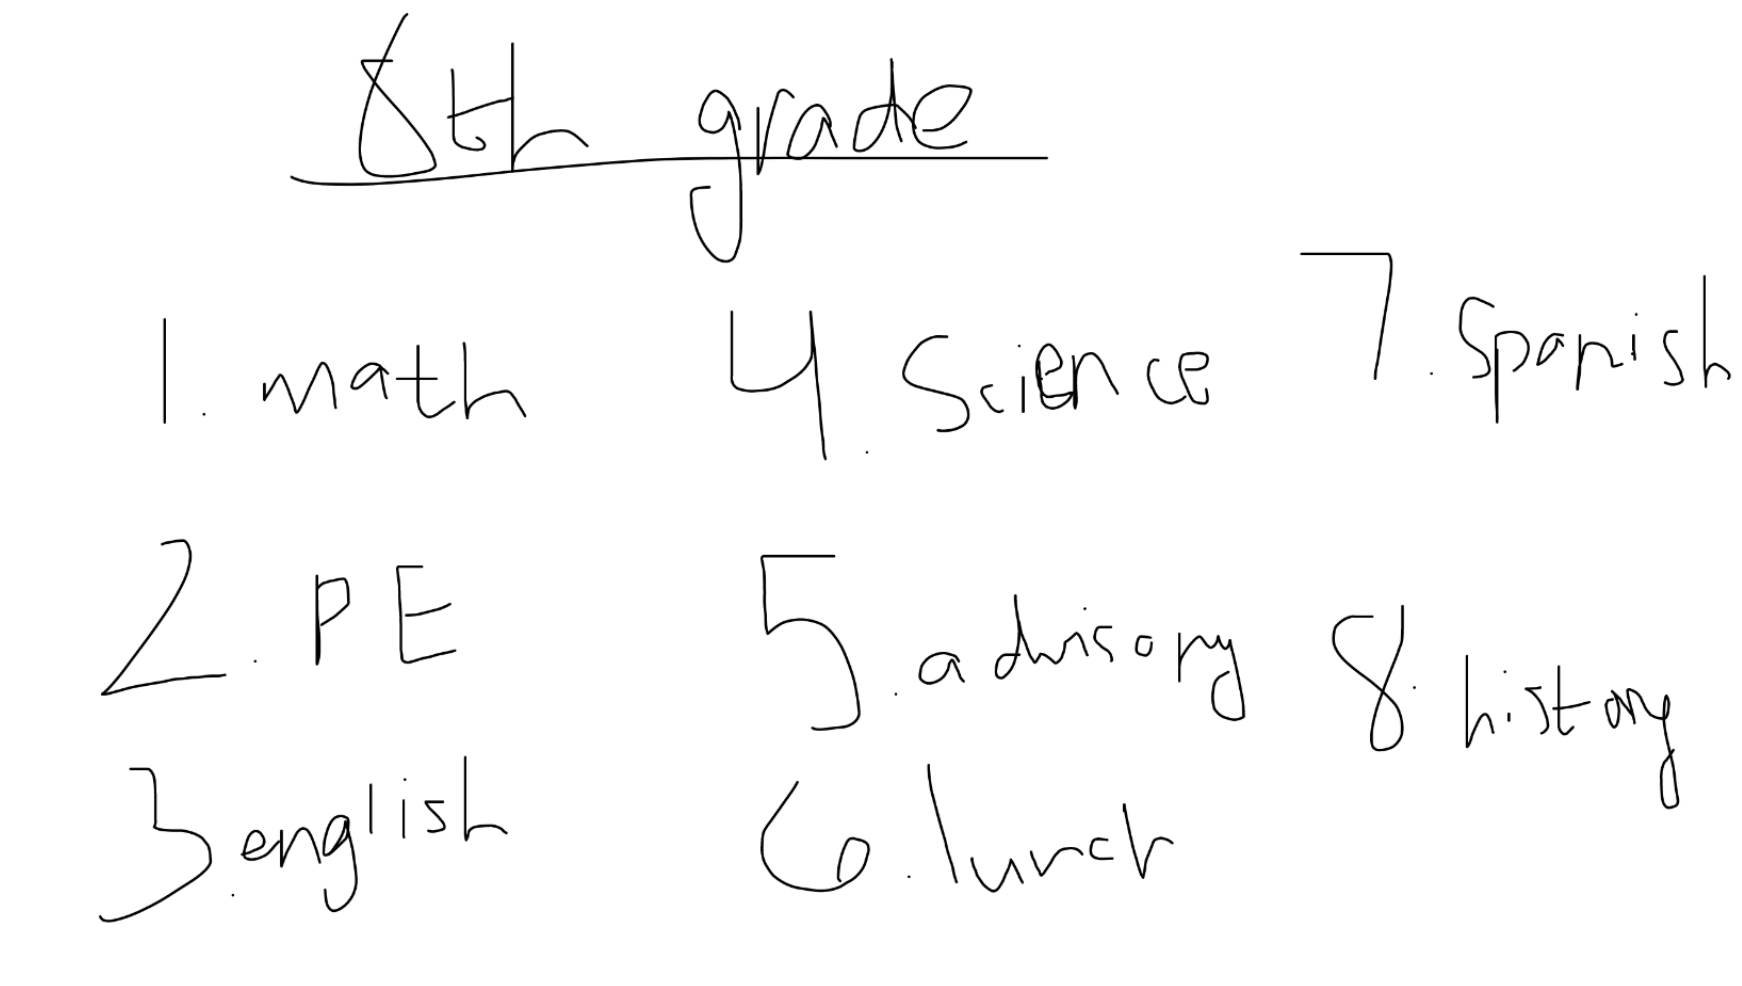 8th grade
1. math
2. PE
3. english
4. Science
5. advisory
6. lunch
7. Spanish
8. history